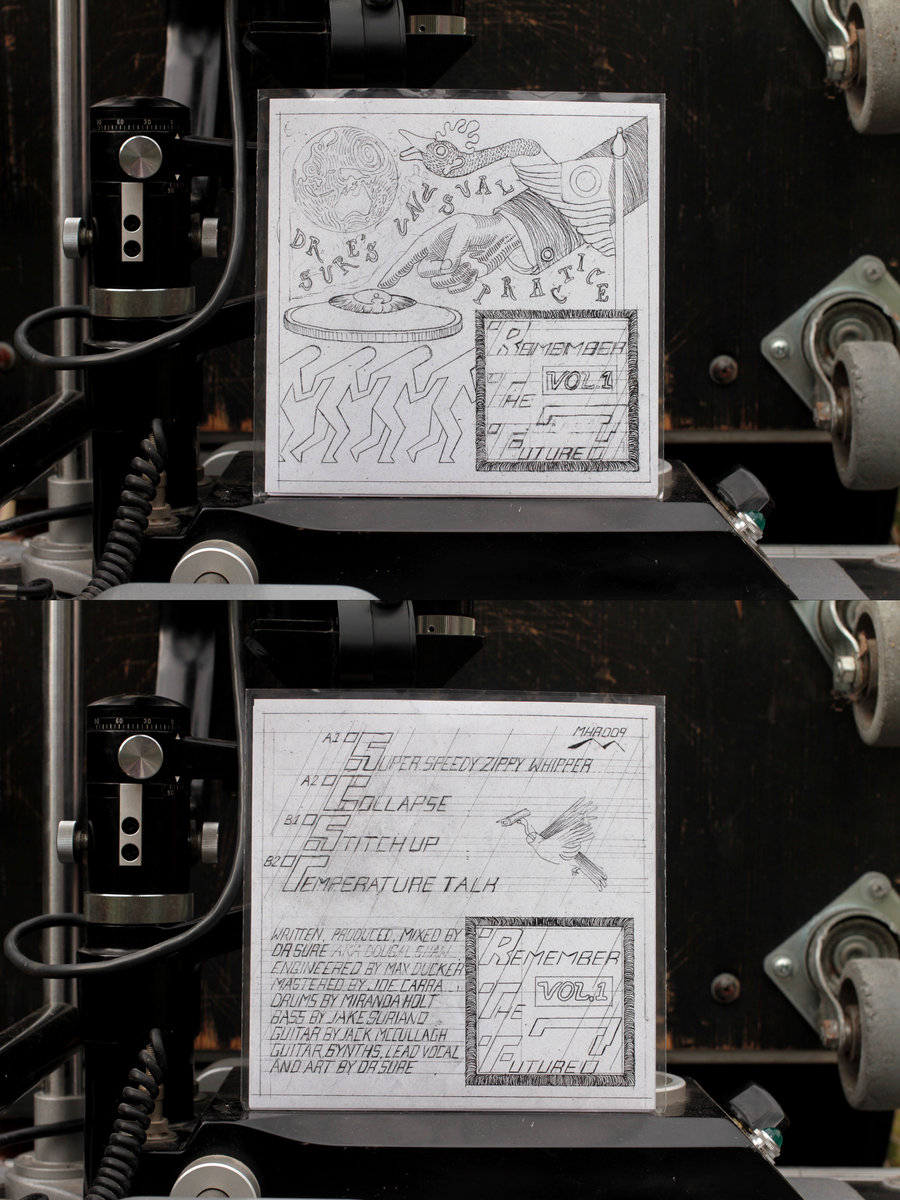 DR. SURE'S UNUSUAL PRACTICE
REMEMBER
VOL.1
THE
FUTURE
60 30 0
A1 SUPER SPEEDY ZIPPY WHIPPER
MHR009
A2 COLLAPSE
B1 STITCH UP
B2 TEMPERATURE TALK
WRITTEN, PRODUCED, MIXED BY
DR SURE AKA DOUGAL SHAW
ENGINEERED BY MAX DUCKER
MASTERED BY JOE CARRA
DRUMS BY MIRANDA HOLT
BASS BY JAKE SURIANO
GUITAR BY JACK MCCULLAGH
GUITAR, SYNTHS, LEAD VOCAL
AND ART BY DR SURE
REMEMBER
VOL.1
THE
FUTURE
60 30 0